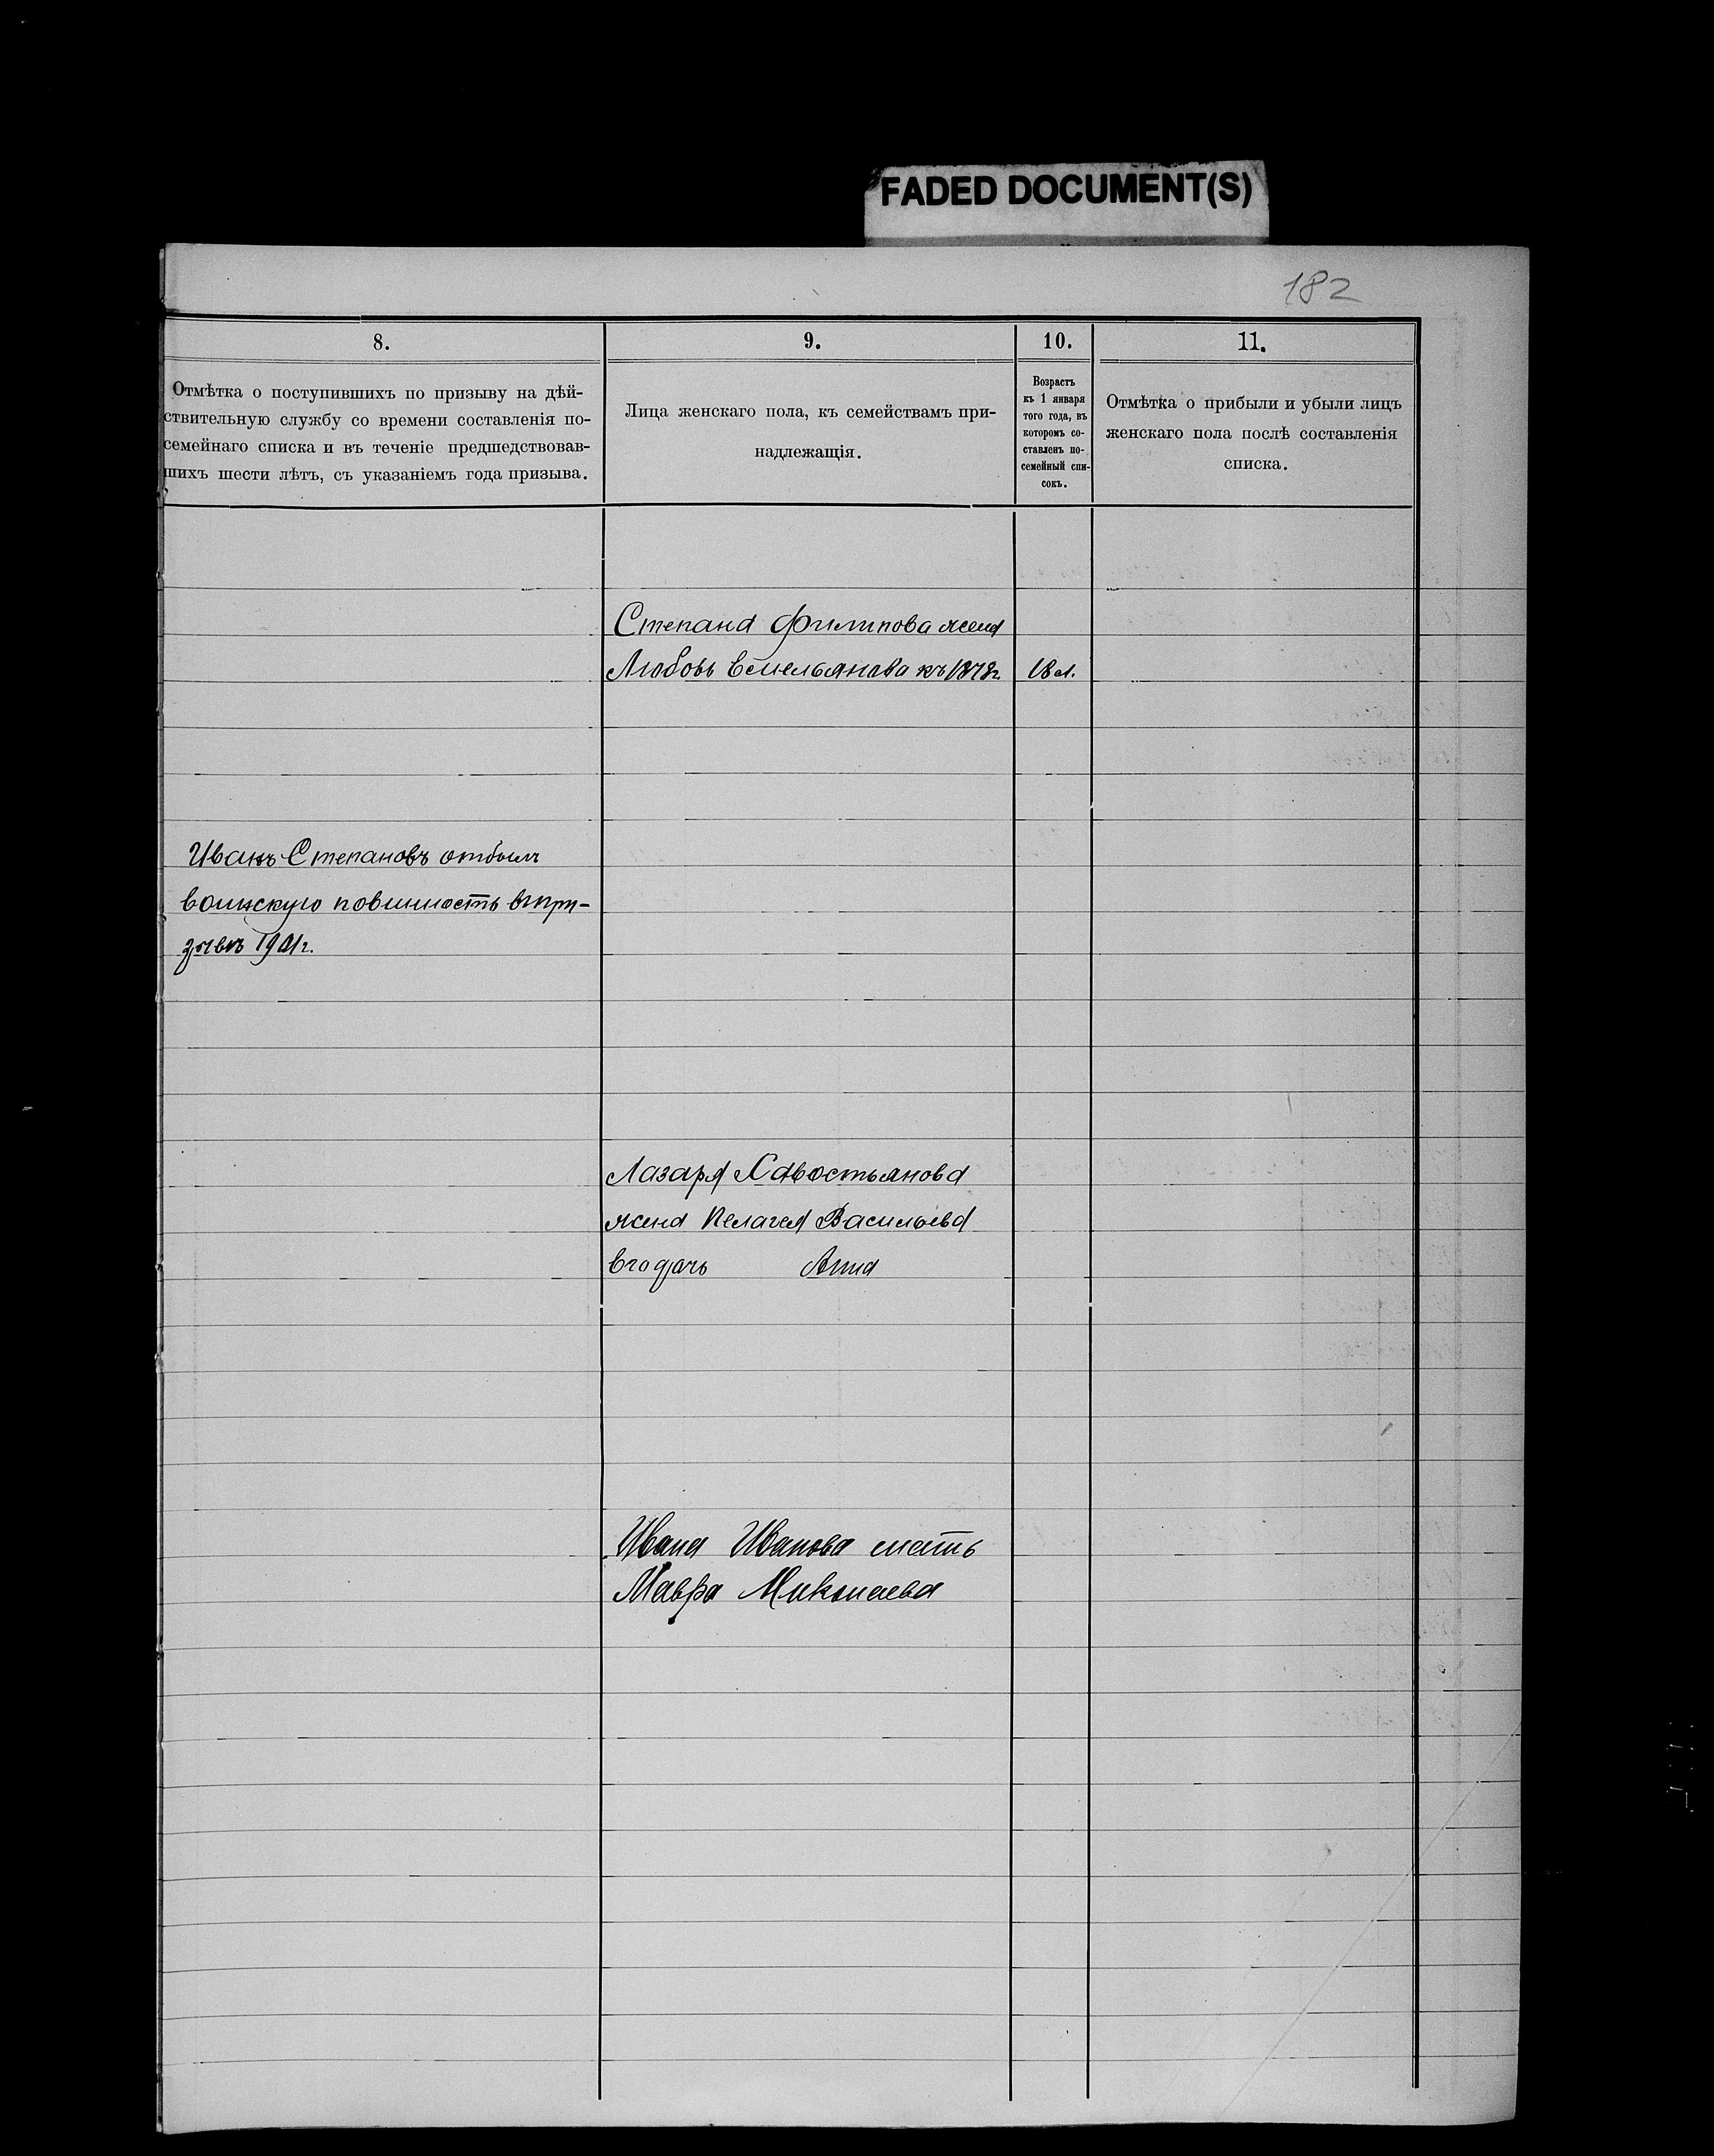 FADED DOCUMENT(S)
182
8.
9.
10.
11.
Отмѣтка о поступившихъ по призыву на дѣй-
ствительную службу со времени составленія по-
семейнаго списка и въ теченіе предшедствовав-
шихъ шести лѣтъ, съ указаніемъ года призыва.
Лица женскаго пола, къ семействамъ при-
надлежащія.
Возрастъ
къ 1 января
того года, въ
которомъ со-
ставленъ по-
семейный спи-
сокъ.
Отмѣтка о прибыли и убыли лицъ
женскаго пола послѣ составленія
списка.
Степана Филипова жена
Любовь Емельянова къ 1878г. 18 л.
Иванъ Степановъ отбылъ
воинскую повинность въ при-
зывъ 1901г.
Лазаря Савостьянова
жена Пелагея Васильева
Анна
Ивана Иванова мать
Мавра Миколаева